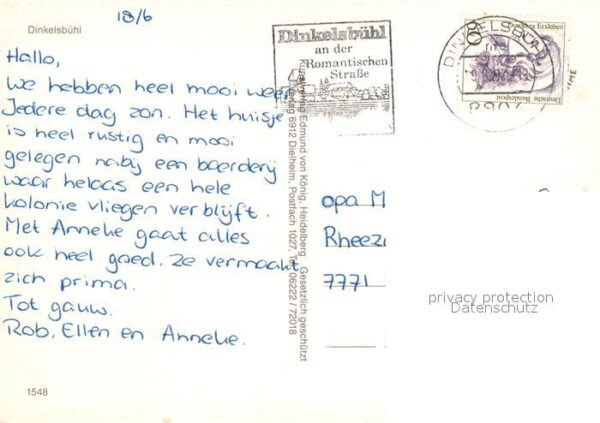 18/6
Dinkelsbühl
Hallo,
We hebben heel mooi weer
Jedere dag zon. Het huisje
is heel rustig en mooi
gelegen naby een boerdery
waar helaas een hele
kolonie vliegen verblijft.
Met Anneke gaat alles
ook heel goed. Ze vermaakt
zich prima.
Tot gauw.
Rob, Ellen en Anneke.
1548
Edmund von König, Heidelberg Gesetzlich geschützt
6912 Dielheim, Postfach 1027, Tel. 06222 / 72018
Dinkelsbühl
an der
Romantischen
Straße
DINKELSBÜHL
60
Deutsche Bundespost
opa M
Rheez
7771
privacy protection
Datenschutz